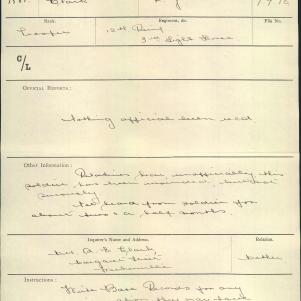 Clark
7.9.16
Rank. Regiment, &c. File No.
Trooper 12th Reinf
3rd Light Horse
C/L
OFFICIAL REPORTS:
Nothing official been rec'd
Other Information:
Relatives hear unofficially this
soldier has been wounded, but not
seriously
Not heard from soldier for
about two & a half months.
Inquirer's Name and Address. Relation.
Mrs. A. E. Clark,
Street
Mother
Instructions:
Write Base Records for any
they may have